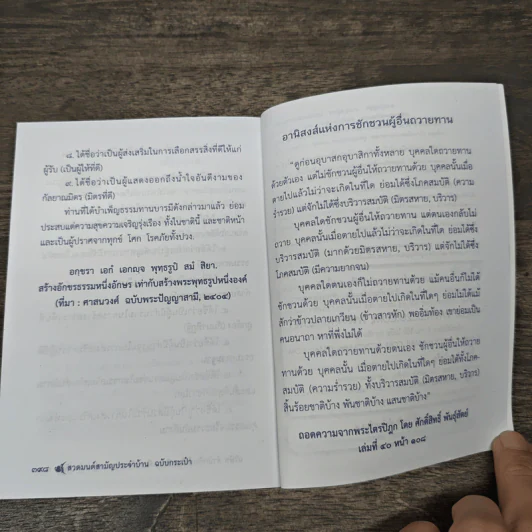 ๘. ได้ชื่อว่าเป็นผู้ส่งเสริมในการเลือกสรรสิ่งที่ดีให้แก่
ผู้รับ (เป็นผู้ให้ที่ดี)
๙. ได้ชื่อว่าเป็นผู้แสดงออกถึงน้ำใจอันดีงามของ
กัลยาณมิตร (มิตรที่ดี)
ท่านที่ได้บำเพ็ญธรรมทานบารมีดังกล่าวมาแล้ว ย่อม
ประสบแต่ความสุขความเจริญรุ่งเรือง ทั้งในชาตินี้ และชาติหน้า
และเป็นผู้ปราศจากทุกข์ โศก โรคภัยทั้งปวง.
อกฺขรา เอกํ เอกญฺจ พุทฺธรูปํ สมํ สิยา.
สร้างอักขรธรรมหนึ่งอักษร เท่ากับสร้างพระพุทธรูปหนึ่งองค์
(ที่มา : ศาสนวงศ์ ฉบับพระปัญญาสามี, ๒๔๐๔)
๓๙๘ สวดมนต์สามัญประจำบ้าน ฉบับกระเป๋า
อานิสงส์แห่งการชักชวนผู้อื่นถวายทาน
"ดูก่อนอุบาสกอุบาสิกาทั้งหลาย บุคคลใดถวายทาน
ด้วยตัวเอง แต่ไม่ชักชวนผู้อื่นให้ถวายทานด้วย บุคคลนั้นเมื่อ
ตายไปแล้วไม่ว่าจะเกิดในที่ใด ย่อมได้ซึ่งโภคสมบัติ (ความ
ร่ำรวย) แต่จักไม่ได้ซึ่งบริวารสมบัติ (มิตรสหาย, บริวาร)
บุคคลใดชักชวนผู้อื่นให้ถวายทาน แต่ตนเองกลับไม่
ถวาย บุคคลนั้นเมื่อตายไปแล้วไม่ว่าจะเกิดในที่ใด ย่อมได้ซึ่ง
บริวารสมบัติ (มากด้วยมิตรสหาย, บริวาร) แต่จักไม่ได้ซึ่ง
โภคสมบัติ (มีความยากจน)
บุคคลใดตนเองก็ไม่ถวายทานด้วย แม้คนอื่นก็ไม่ได้
ชักชวนด้วย บุคคลนั้นเมื่อตายไปเกิดในที่ใดๆ ย่อมไม่ได้แม้
สักว่าข้าวปลายเกวียน (ข้าวสารหัก) พออิ่มท้อง เขาย่อมเป็น
คนอนาถา หาที่พึ่งไม่ได้
บุคคลใดถวายทานด้วยตนเอง ชักชวนผู้อื่นให้ถวาย
ทานด้วย บุคคลนั้น เมื่อตายไปเกิดในที่ใดๆ ย่อมได้ทั้งโภค-
สมบัติ (ความร่ำรวย) ทั้งบริวารสมบัติ (มิตรสหาย, บริวาร)
สิ้นร้อยชาติบ้าง พันชาติบ้าง แสนชาติบ้าง"
ถอดความจากพระไตรปิฎก โดย ศักดิ์สิทธิ์ พันธุ์สัตย์
เล่มที่ ๔๐ หน้า ๑๐๘